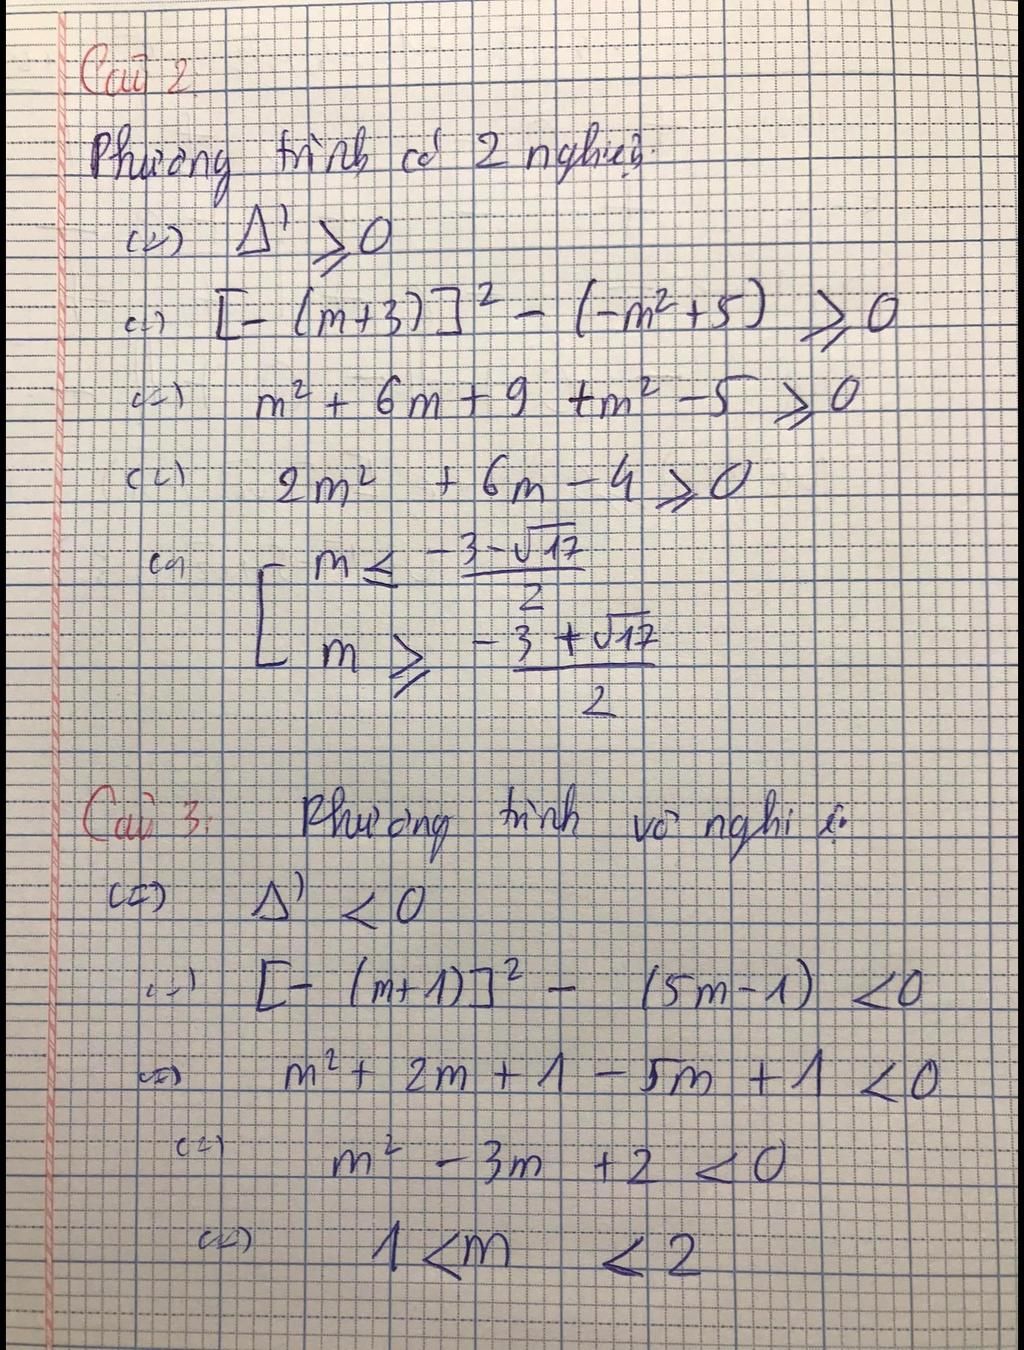 Câu 2.
Phương trình có 2 nghiệm
(=) Δ' ⩾ 0
(=) [- (m+3)]² - (-m² + 5) ⩾ 0
(=) m² + 6m + 9 + m² - 5 ⩾ 0
(=) 2m² + 6m - 4 ⩾ 0
(=) [ m ≤ (-3 - √17)/2
m ⩾ (-3 + √17)/2
Câu 3. Phương trình vô nghiệ
(=) Δ' < 0
(=) [- (m+1)]² - (5m - 1) < 0
(=) m² + 2m + 1 - 5m + 1 < 0
(=) m² - 3m + 2 < 0
(=) 1 < m < 2